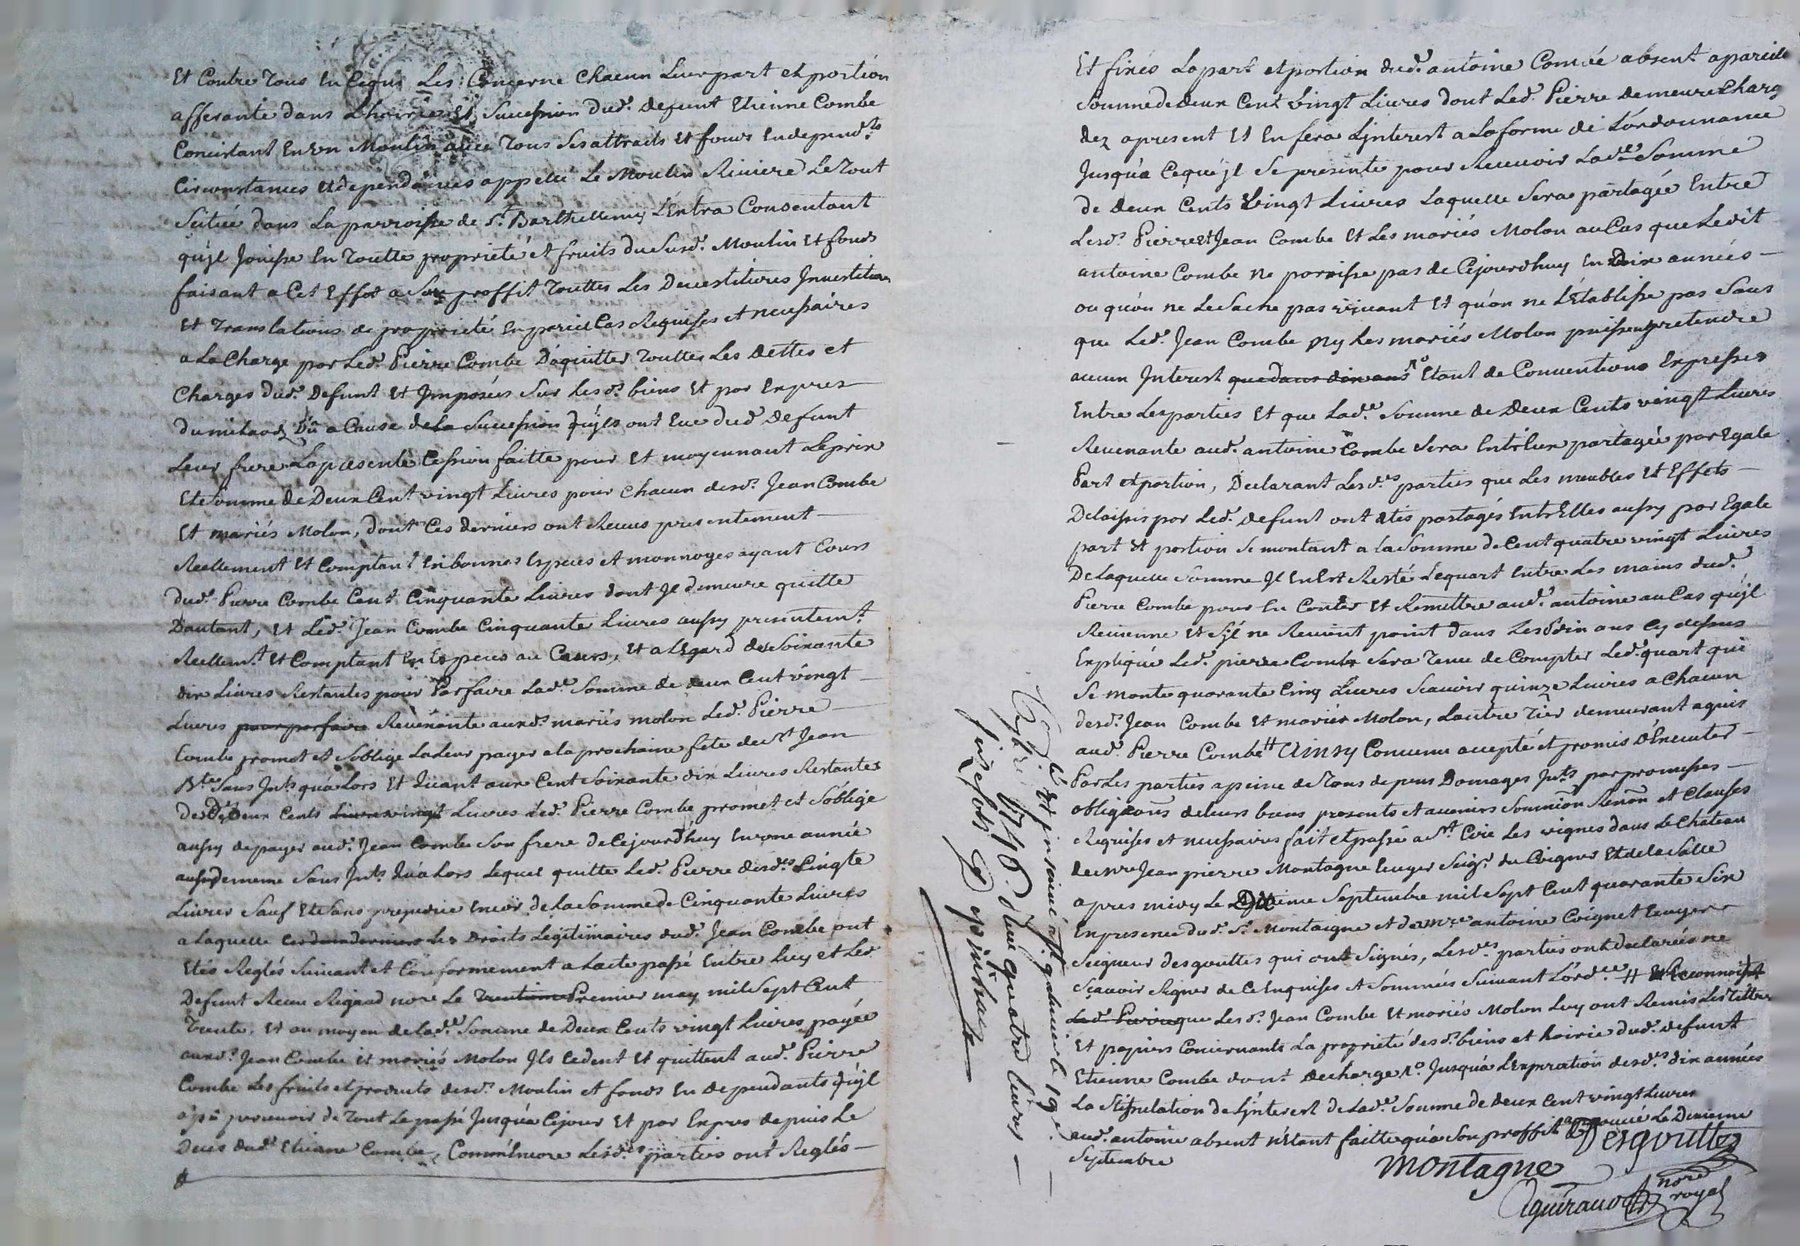 Et Contre Tous En Ce qui Les Concerne Chacun Leur part et portion
afferante dans L'hoirie Et Succession dud. Defunt Etienne Combe
Concistant En un Moulin avec Tous Ses attraits Et fonds En depend.ts
Circonstances et dependances appellé Le Moulin Riviere Le Tout
Scitué dans La parroisse de St. Barthellemy L'Entra Consentant
qu'jl Jouisse En Toutte proprieté et fruits du Susd. Moulin Et fonds
faisant a Cet Effet a Son proffit Touttes Les Devestitures Jnvestitures
Et Translations de proprieté En pareil Cas Requises et necessaires
a La Charge par Led. Pierre Combe D'aquitter Touttes Les Dettes et
Charges dud. Defunt Et Jmposées Sur Lesd. biens Et par Expres
du a Cause de La Succession qu'jls ont Eue dud. Defunt
Leur frere La presente Cession faitte pour Et moyennant Le prix
Et Somme de Deux Cent vingt Livres pour Chacun desd. Jean Combe
Et mariés Molon, dont Ces derniers ont Receus presentement
Reellement Et Comptant En bonnes Especes et monnoyes ayant Cours
dud. Pierre Combe Cent Cinquante Livres dont Jl demeure quitte
D'autant, Et Led. Jean Combe Cinquante Livres aussy presentem.t
Reellem.t Et Comptant En Especes au Cours, Et a L'Egard des Soixante
dix Livres Restantes pour Parfaire Lad.e Somme de deux Cent vingt
Livres pour parfaire Revenante auxd. mariés molon Led. Pierre
Combe promet et S'oblige La Leur payer a la prochaine fete de St. Jean
B.te Sans Jnts. qu'a Lors Et Quant aux Cent Soixante dix Livres Restantes
desd. Deux Cents Livres vingt Livres Led. Pierre Combe promet et S'oblige
aussy de payer aud. Jean Combe Son frere de Cejourd'huy En une année
aussy de meme Sans Jnts. qu'a Lors Lequel quitte Led. Pierre desd.es Vingte
Livres Sauf Et Sans prejudice Encor de La Somme de Cinquante Livres
a Laquelle Les Droits Legitimaires dud. Jean Combe ont
Etés Reglés Suivant et Conformement a L'acte passé Entre Luy et Led.
Defunt Receu Rigaud nore Le Trentieme Premier may mil Sept Cent
Trente, Et au moyen de Lad.e Somme de Deux Cents vingt Livres payée
auxd. Jean Combe et mariés Molon Jls Cedent Et quittent aud. Pierre
Combe Les fruits et produits desd. Moulin et fonds En dependants qu'jl
a pû percevoir de Tout Le passé Jusqu'a Cejour Et par Expres depuis Le
Decés dud. Etienne Combe, Comm'Encore Lesd.es parties ont Reglés
Et fixés La part et portion dud. antoine Combe absent a pareille
Somme de Deux Cent Vingt Livres dont Led. Pierre Demeure Chargé
dez apresent Et En fera L'jnterest a La forme de L'ordonnance
Jusqu'a Ce qu'jl Se presente pour Recevoir Lad.e Somme
de Deux Cents Vingt Livres Laquelle Sera partagée Entre
Lesd. Pierre et Jean Combe Et Les mariés Molon au Cas que Ledit
antoine Combe ne paroisse pas de Cejourdhuy En Dix années
ou qu'on ne Le Sache pas vivant Et qu'on ne L'Etablisse pas Sans
que Led. Jean Combe ny Les mariés Molon puissent pretendre
aucun Jnterest que dans dix ans Etant de Conventions Expresses
Entre Les parties Et que Lad.e Somme de Deux Cents vingt Livres
Revenante aud. antoine Combe Sera Entr'Eux partagée par Egale
Part et portion, Declarant Lesd.es parties que Les meubles Et Effets
Delaissés par Led. defunt ont Etés partagés Entr'Elles aussy par Egale
part Et portion Se montant a La Somme de Cent quatre vingt Livres
De Laquelle Somme Jl En Est Resté Le quart Entre Les mains dud.
Pierre Combe pour En Conter Et Remettre aud. antoine au Cas qu'jl
Revienne Et S'jl ne Revient point dans Les dix ans Cy dessus
Expliqué Led. pierre Combe Sera Tenu de Compter Led. quart qui
Se monte quarante Cinq Livres Scavoir quinze Livres a Chacun
desd. Jean Combe Et mariés Molon, L'autre Tier demeurant aquis
aud. Pierre Combe Ainsy Convenu accepté et promis D'Executer
Par Les parties a peine de Tous depens Domages Jnts. par promesses
obligaons de Leurs biens presents et avenirs Soumiõn Renõn et Clauses
Requises et necessaires fait Et passé a St. Cire Les vignes dans Le Château
de mre Jean pierre Montagne Ecuyer Seigr. de Poignes Et de La Salle
apres midy Le Dixieme Septembre mil Sept Cent quarante Six
En presence dud. Sr. Montagne et de mre antoine Coignet Ecuyer
Seigneur des gouttes qui ont Signés, Lesd.es parties ont declarées ne
Scavoir Signer de Ce Enquises et Sommées Suivant L'ord.ce # Et Reconnoist
Led. Pierre que Les Sr. Jean Combe Et mariés Molon Luy ont Remis Les Titres
Et papiers Concernants La proprieté desd. biens et hoirie dud. defunt
Etienne Combe dont Decharge. Jusqu'a L'Expiration desd.es dix années
La Stipulation de L'jnterest de Lad.e Somme de deux Cent vingt Livres
aud. antoine absent n'Etant faitte qu'a Son proffit Le Dixieme
Septembre
Desgouttes
Montagne
Aguiraud
nore
royal
Cé et jnsinué a St. galmier Le 19e.
7bre 1746. Reçu quatre Livres
Six sols